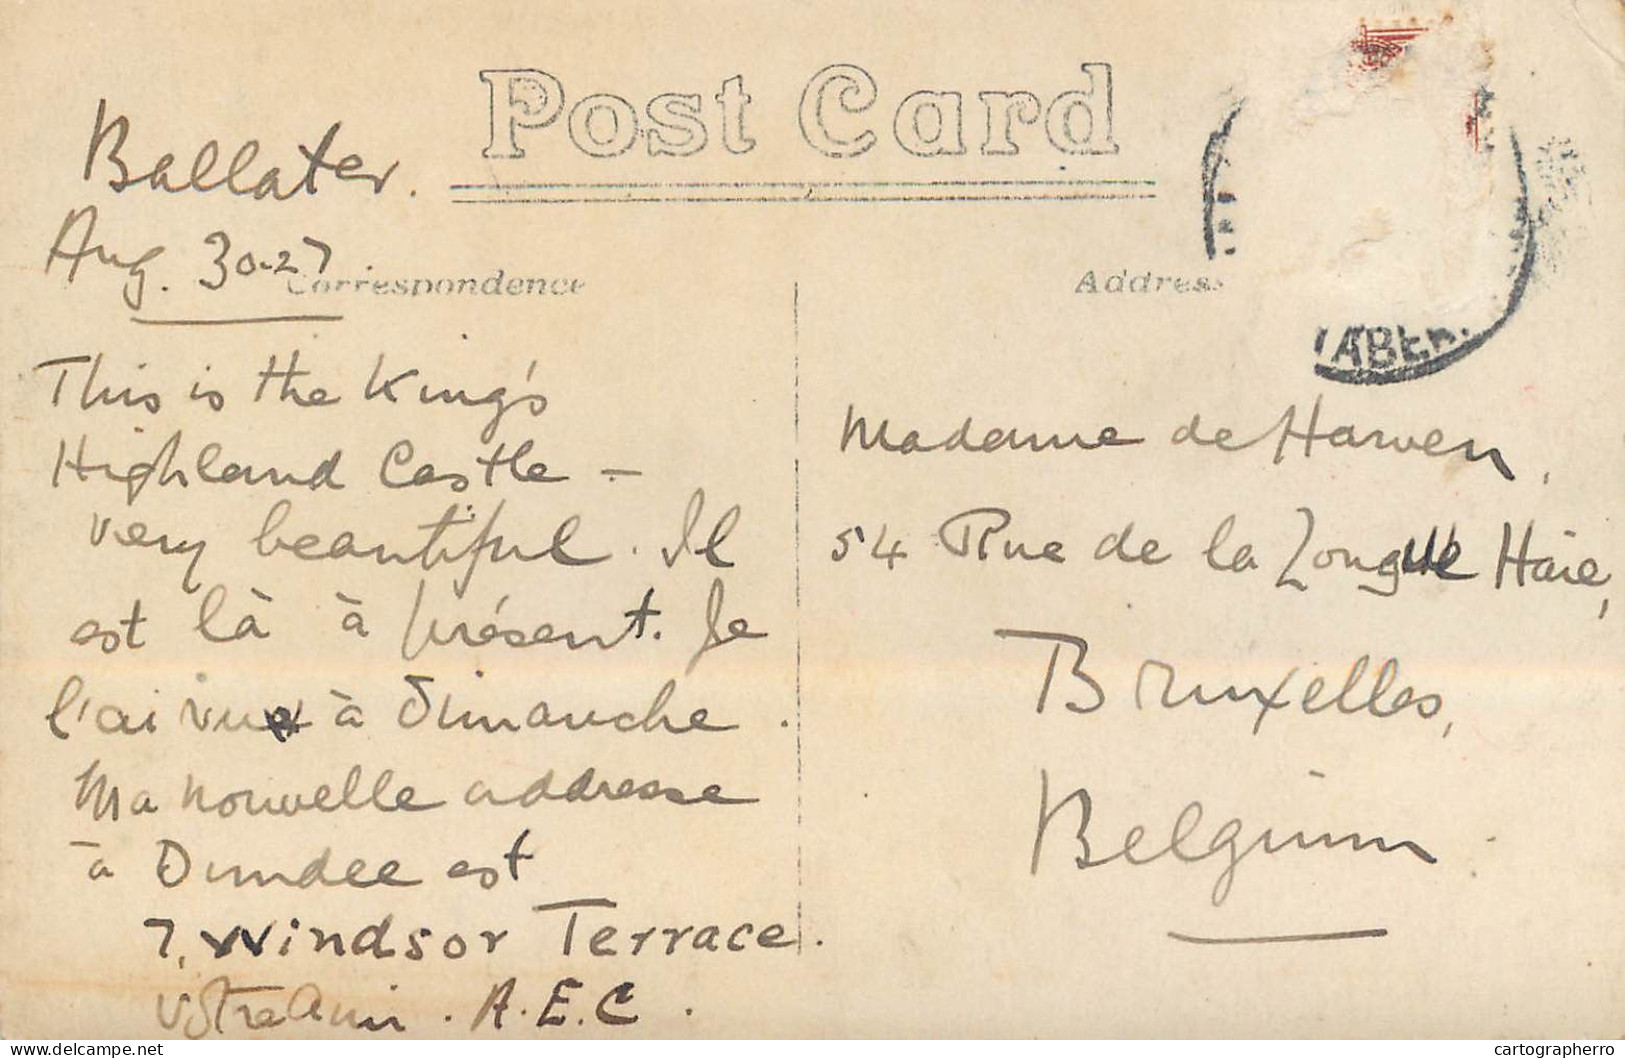 Post Card
Ballater.
Aug. 30-27.
Correspondence
Address
This is the King's
Highland Castle –
very beautiful. Il
est là à présent. Je
l'ai vu à Dimanche.
Ma nouvelle addresse
à Dundee est
7, Windsor Terrace.
Votre Ami. A.E.C.
Madame de Harven,
54 Rue de la Longue Haie,
Bruxelles,
Belgium.
delcampe.net
cartographerro